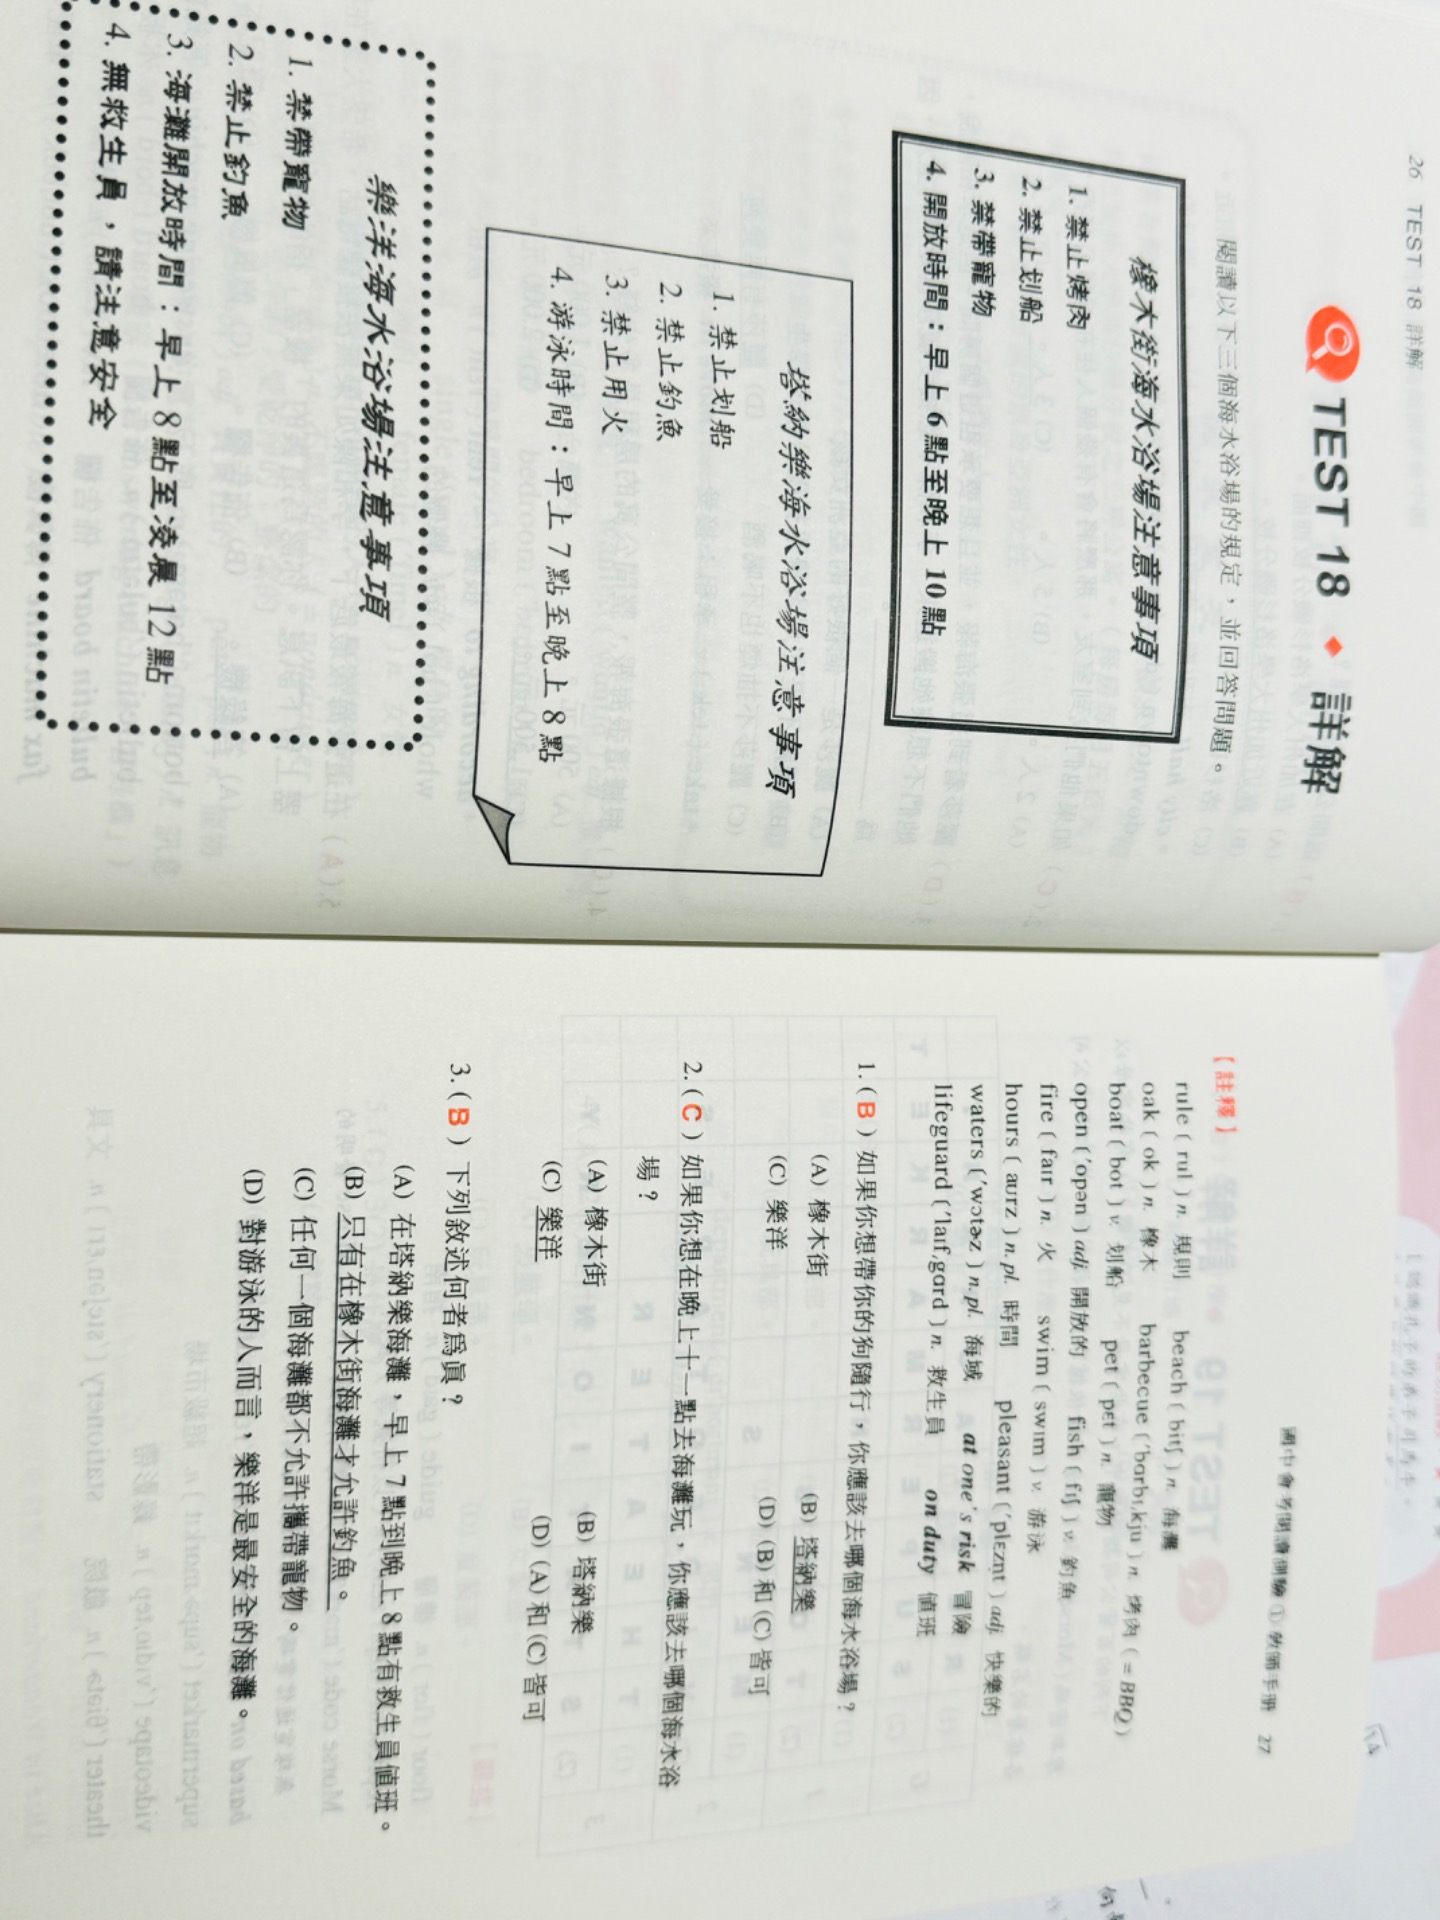 26 TEST 18 詳解
TEST 18 ◆ 詳解
閱讀以下三個海水浴場的規定，並回答問題。
橡木街海水浴場注意事項
1. 禁止烤肉
2. 禁止划船
3. 禁帶寵物
4. 開放時間：早上 6 點至晚上 10 點
塔納樂海水浴場注意事項
1. 禁止划船
2. 禁止釣魚
3. 禁止用火
4. 游泳時間：早上 7 點至晚上 8 點
樂洋海水浴場注意事項
1. 禁帶寵物
2. 禁止釣魚
3. 海灘開放時間：早上 8 點至凌晨 12 點
4. 無救生員，請注意安全
國中會考閱讀測驗①教師手冊 27
【註釋】
rule ( rul ) n. 規則 beach ( bitʃ ) n. 海灘
oak ( ok ) n. 橡木 barbecue (ˈbɑrbɪˌkju ) n. 烤肉 ( = BBQ )
boat ( bot ) v. 划船 pet ( pɛt ) n. 寵物
open (ˈopən ) adj. 開放的 fish ( fɪʃ ) v. 釣魚
fire ( faɪr ) n. 火 swim ( swɪm ) v. 游泳
hours ( aʊrz ) n. pl. 時間 pleasant (ˈplɛzn̩t ) adj. 快樂的
waters (ˈwɔtɚz ) n. pl. 海域 at one's risk 冒險
lifeguard (ˈlaɪfˌgɑrd ) n. 救生員 on duty 值班
1. ( B ) 如果你想帶你的狗隨行，你應該去哪個海水浴場？
(A) 橡木街 (B) 塔納樂
(C) 樂洋 (D) (B) 和 (C) 皆可
2. ( C ) 如果你想在晚上十一點去海灘玩，你應該去哪個海水浴
場？
(A) 橡木街 (B) 塔納樂
(C) 樂洋 (D) (A) 和 (C) 皆可
3. ( B ) 下列敘述何者為真？
(A) 在塔納樂海灘，早上 7 點到晚上 8 點有救生員值班。
(B) 只有在橡木街海灘才允許釣魚。
(C) 任何一個海灘都不允許攜帶寵物。
(D) 對游泳的人而言，樂洋是最安全的海灘。